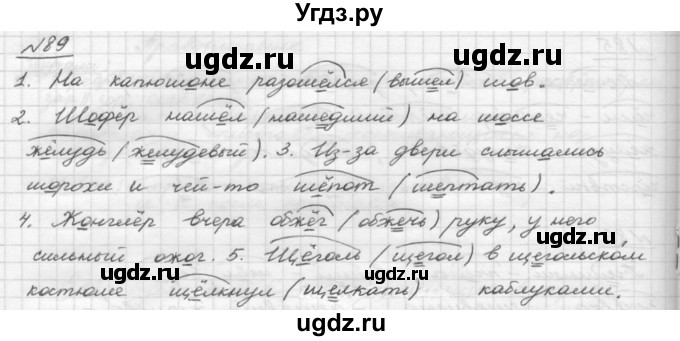 Угдз.ру
№89
1. На капюшоне разошёлся (вышел) шов.
2. Шофёр нашёл (нашедший) на шоссе
жёлудь (желудевый). 3. Из-за двери слышались
шорохи и чей-то шёпот (шептать).
4. Жонглёр вчера обжёг (обжечь) руку, у него
сильный ожог. 5. Щёголь (щегол) в щегольском
костюме щёлкнул (щелкать) каблуками.
ugdz.ru ugdz.ru
ugdz.ru ugdz.ru
ugdz.ru ugdz.ru
ugdz.ru ugdz.ru
ugdz.ru